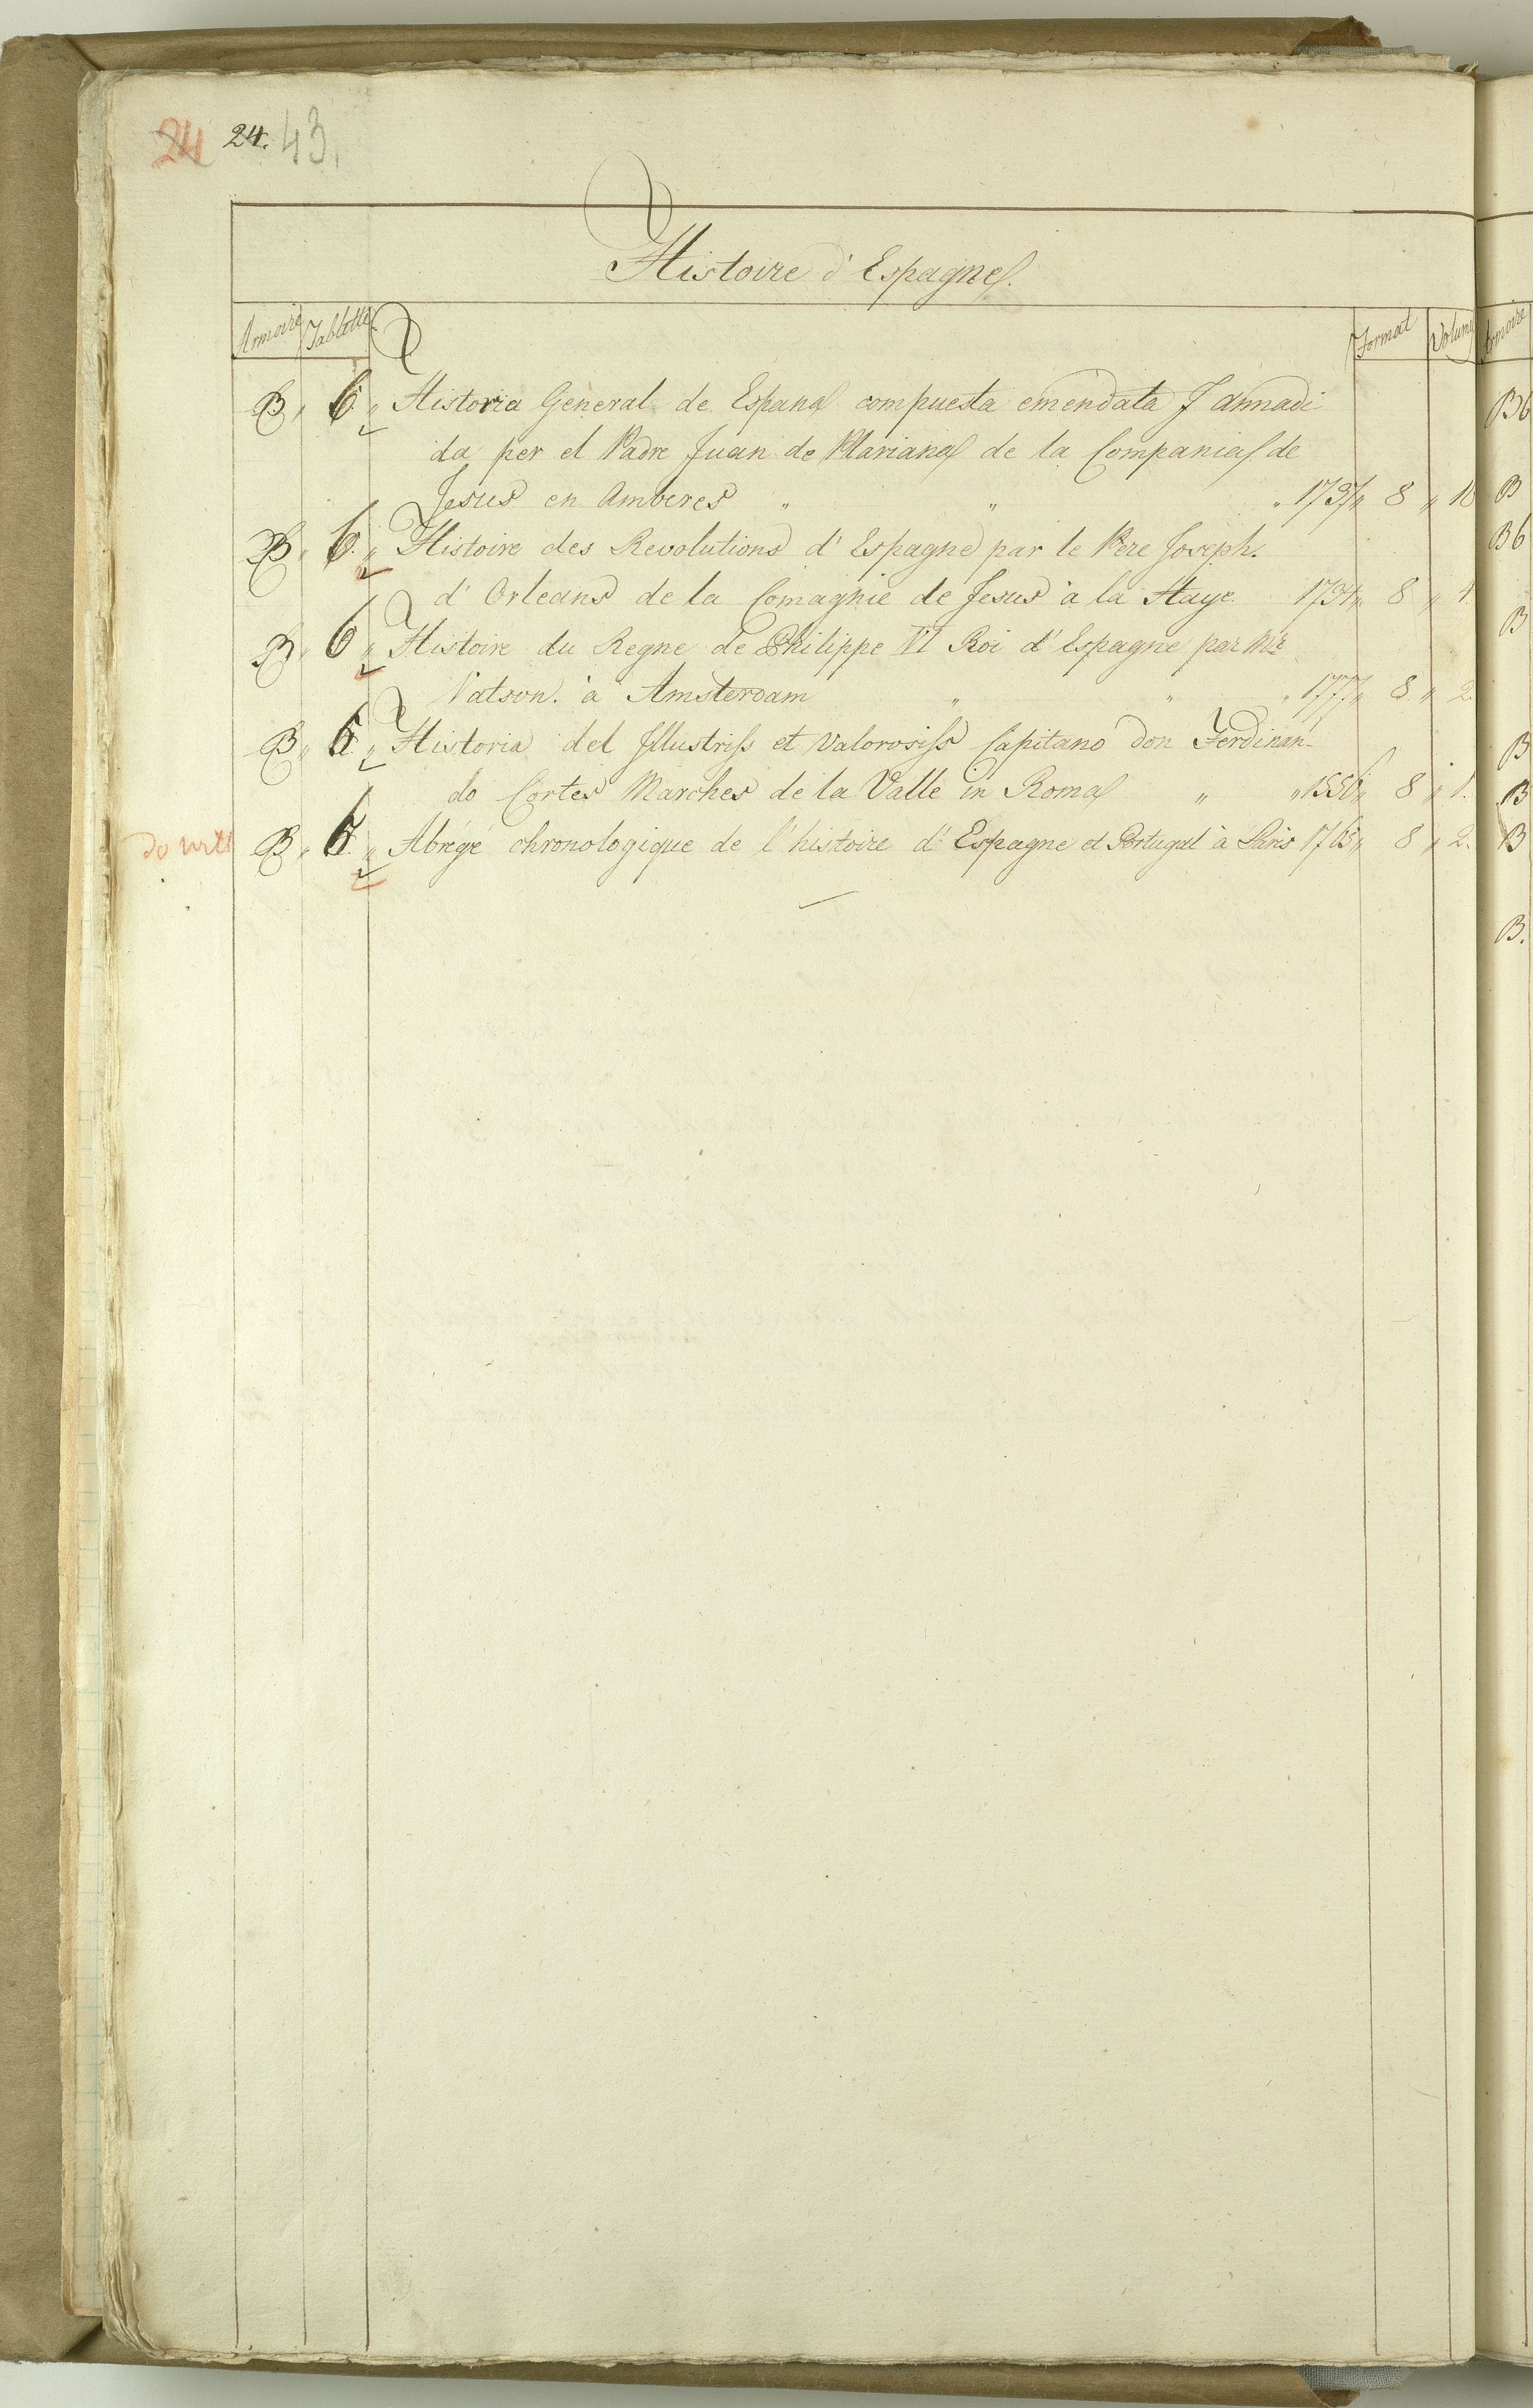 24 24. 43.
Histoire d'Espagne.
Armoire Tablette Format Volume
B „ 6 „ Historia General de Espana compuesta emendata J annadi
da per el Padre Juan de Mariana de la Compania de
Jesus en Amberes „ „ „ 1737 „ 8 „ 10
B „ 6. „ Histoire des Revolutions d'Espagne par le Pere Joseph.
d'Orleans de la Comagnie de Jesus à la Haye 1734 „ 8 „ 4.
B „ 6 „ Histoire du Regne de Philippe VI Roi d'Espagne par Mr
Vatson. à Amsterdam „ „ „ 1777 „ 8 „ 2.
B „ 6. „ Historia del Illustriss et Valorosiss Capitano don Ferdinan-
do Cortes Marches de la Valle in Roma „ „ 1556 „ 8 „ 1.
B „ 6. „ Abregé chronologique de l'histoire d'Espagne et Portugal à Paris 1765 „ 8 „ 2.
Armoire
B6
B
B6
B
B
B
B
B.